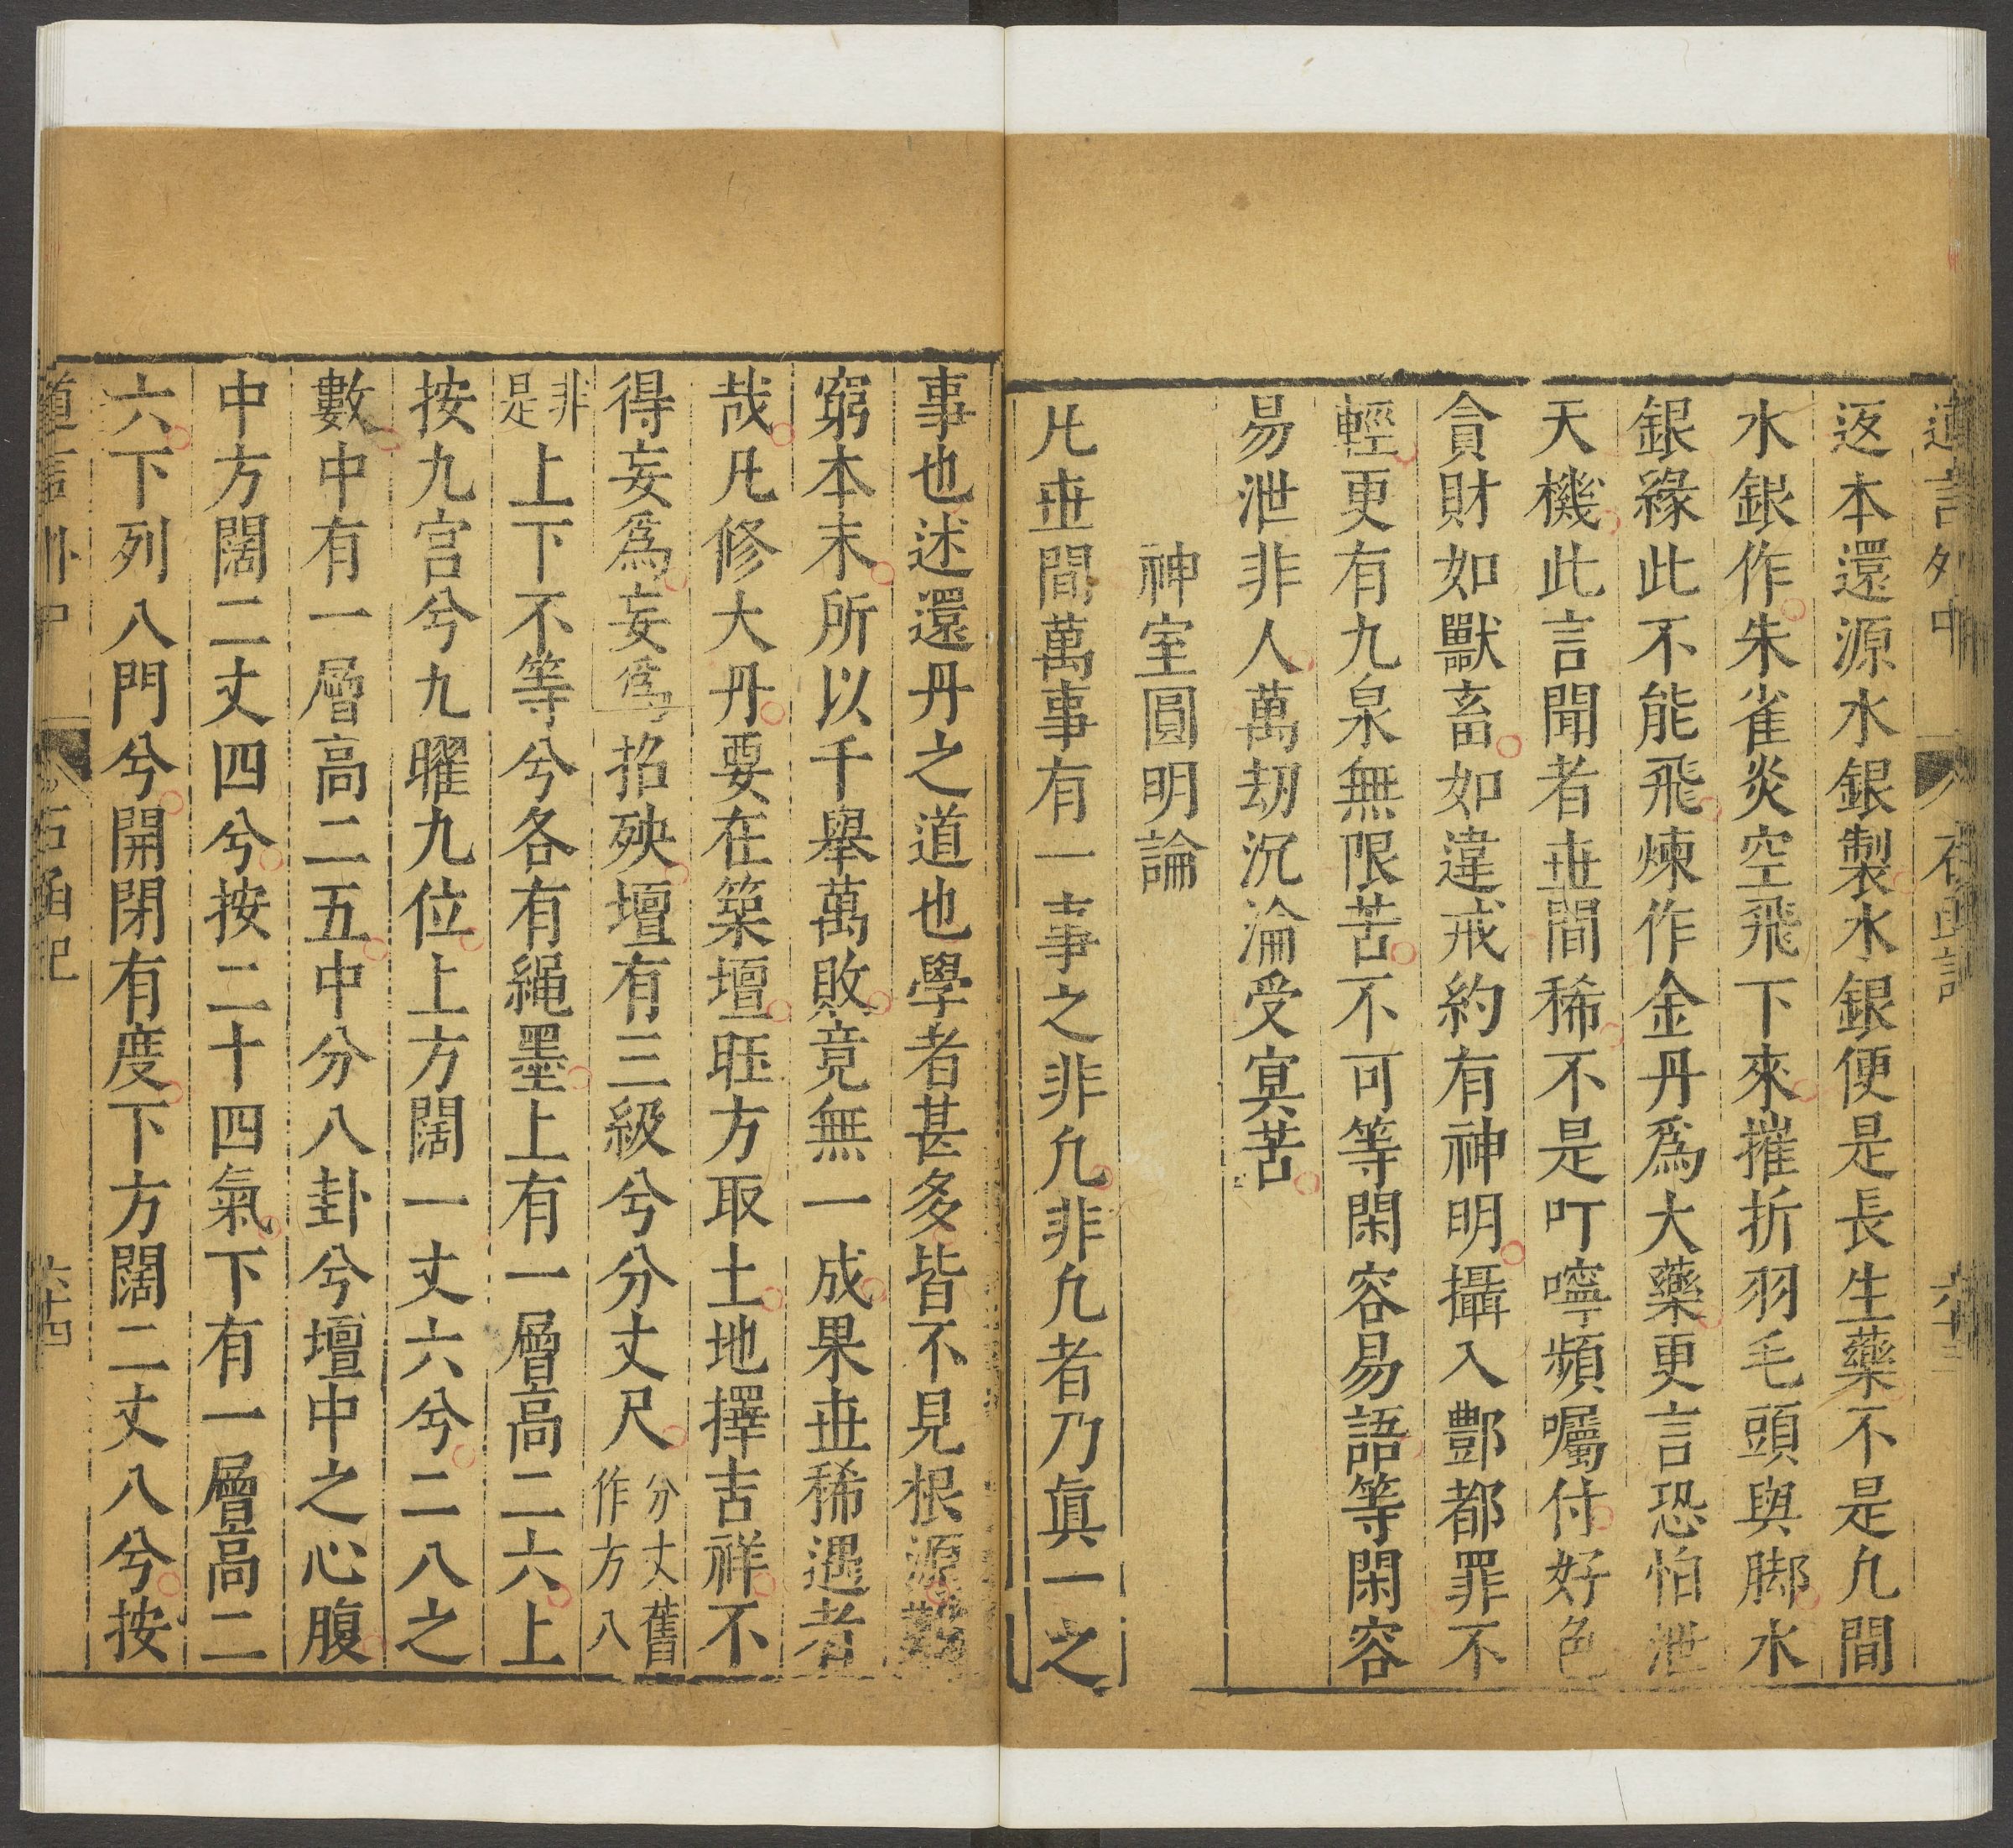 道言外中 石函記 六十三
返本還源水銀製水銀便是長生藥不是凢間
水銀作朱雀炎空飛下來摧折羽毛頭與脚水
銀緣此不能飛煉作金丹爲大藥更言恐怕泄
天機此言聞者世間稀不是叮嚀頻囑付好色
貪財如獸畜如違戒約有神明攝入酆都罪不
輕更有九泉無限苦不可等閑容易語等閑容
易泄非人萬劫沉淪受㝠苦
神室圓明論
凢世間萬事有一事之非凢非凢者乃眞一之
事也述還丹之道也學者甚多皆不見根源難
窮本末所以千舉萬敗竟無一成果世稀遇者
哉凢修大丹要在築壇旺方取土地擇吉祥不
得妄爲妄爲招殃壇有三級兮分丈尺分丈舊作方八
非是上下不等兮各有繩墨上有一層高二六上
按九宫兮九曜九位上方闊一丈六兮二八之
數中有一層高二五中分八卦兮壇中之心腹
中方闊二丈四兮按二十四氣下有一層高二
六下列八門兮開閉有度下方闊二丈八兮按
道言外中 石函記 六十四